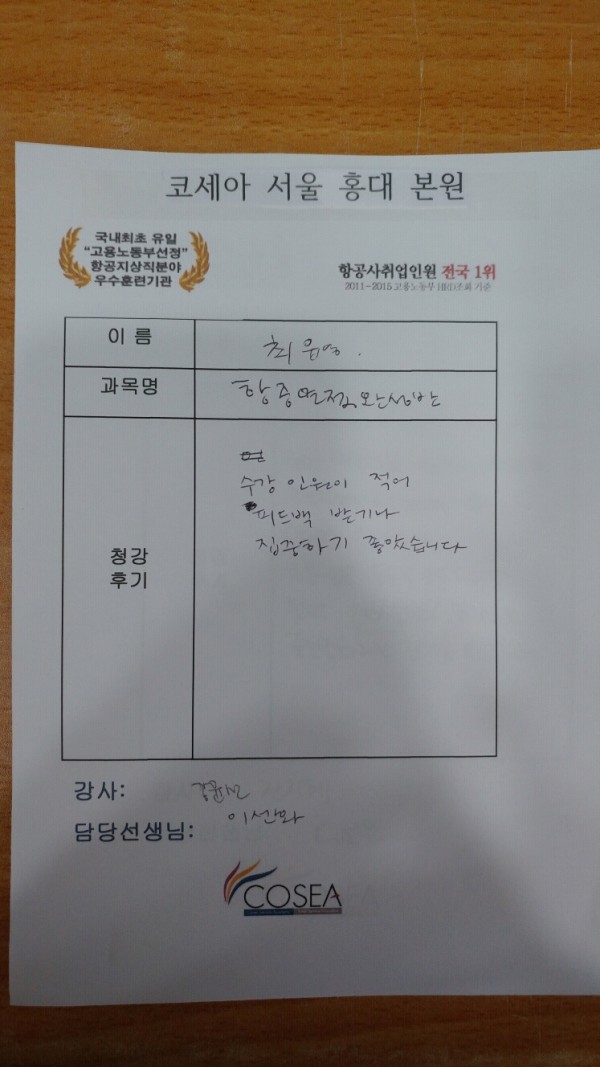 코세아 서울 홍대 본원
국내최초 유일
"고용노동부선정"
항공지상직분야
우수훈련기관
항공사취업인원 전국 1위
2011-2015 고용노동부 HRD조회 기준
이 름
최윤영.
과목명
항승면접완성반
청강
후기
수강 인원이 적어
피드백 받기나
집중하기 좋았습니다
강사:
담당선생님: 이선화
COSEA